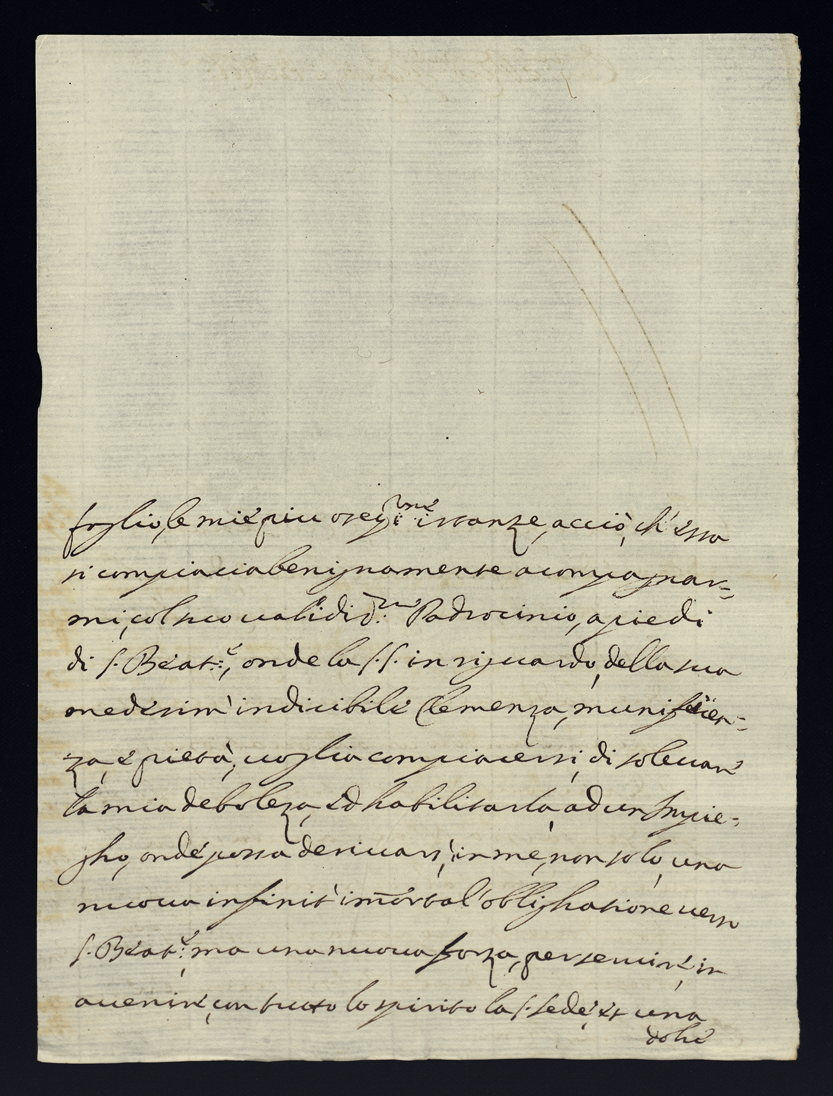 foglio, le mie più osseq.me istanze, acciò, ch'essa
si compiacia benignamente acompagnar=
mi, col suo validid.mo Padrocinio, a piedi
di S. Beat.e, onde la S.S. in riguardo, della sua
medesim' indicibile Clemenza, munificien=
za, e pietà, voglia compiacersi, di solevar
la mia deboleza, ed habilitarla, ad un Impie=
gho, onde possa derivarsi, in me, non solo, una
nuova infinit' imortal' oblighatione verso
S. Beat.e, ma una nuova forza, per servire, in
avenire, con tutto lo spirito la S. Sede, et una